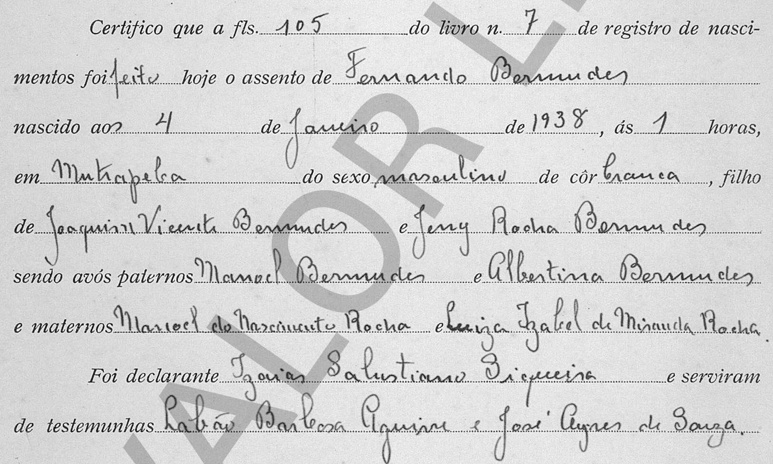 Certifico que a fls. 105 do livro n. 7 de registro de nasci-
mentos foi feito hoje o assento de Fernando Bermudes
nascido aos 4 de Janeiro de 1938, ás 1 horas,
em do sexo masculino de côr branca, filho
de Joaquim Vicente Bermudes e Jeny Rocha Bermudes
sendo avós paternos Manoel Bermudes e Albertina Bermudes
e maternos Manoel do Nascimento Rocha e Luiza Izabel de Miranda Rocha.
Foi declarante Izaias Salustiano Siqueira e serviram
de testemunhas Labão Barbosa Aguirre e José Ayres de Souza.
VALOR